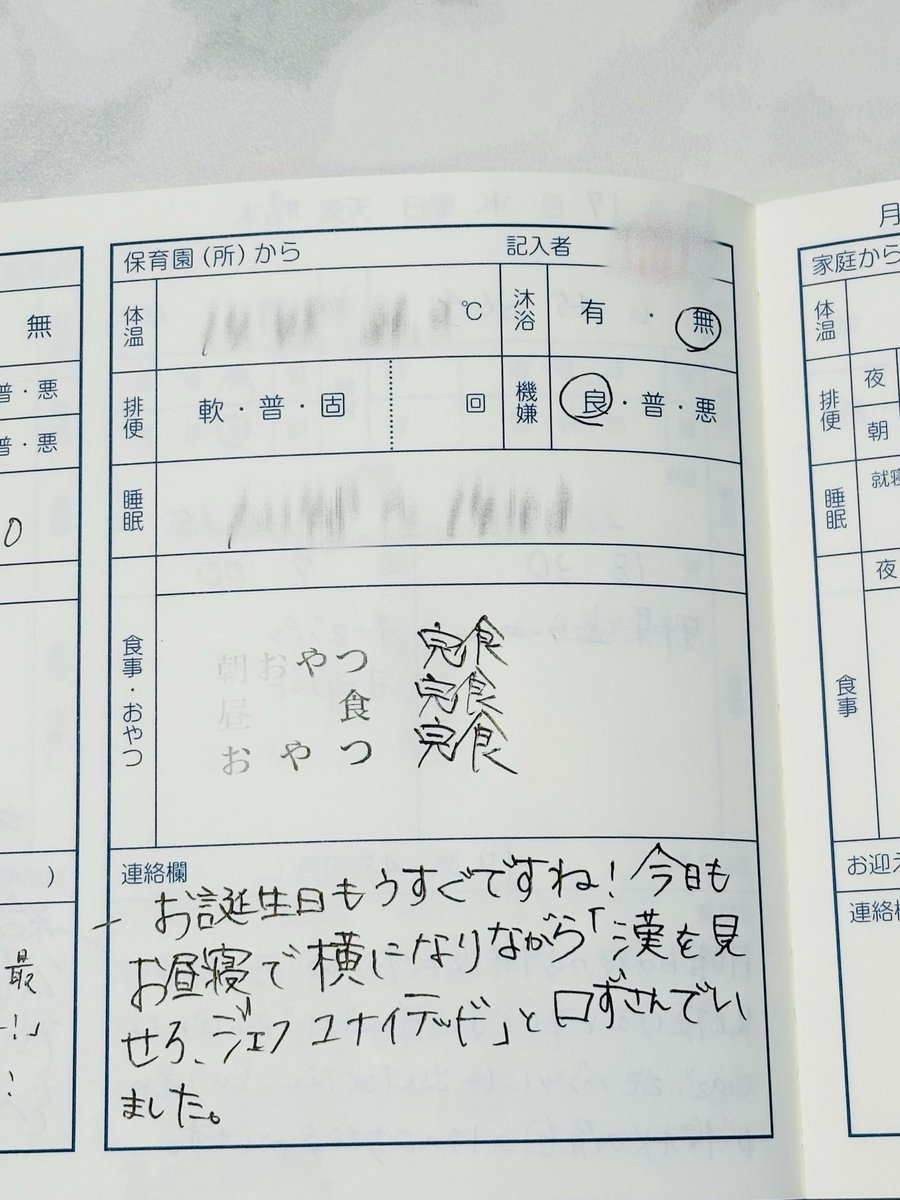 無
普・悪
普・悪
0
)
最
!」
?
保育園(所)から 記入者
体温 ℃ 沐浴 有・無
排便 軟・普・固 回 機嫌 良・普・悪
睡眠
食事・おやつ
朝おやつ 完食
昼食 完食
おやつ 完食
連絡欄
お誕生日もうすぐですね!今日も
お昼寝で横になりながら「漢を見
せろ、ジェフユナイテッド」と口ずさんでい
ました。
月
家庭から
体温
排便 夜
朝
睡眠 就寝
夜
食事
お迎え
連絡欄